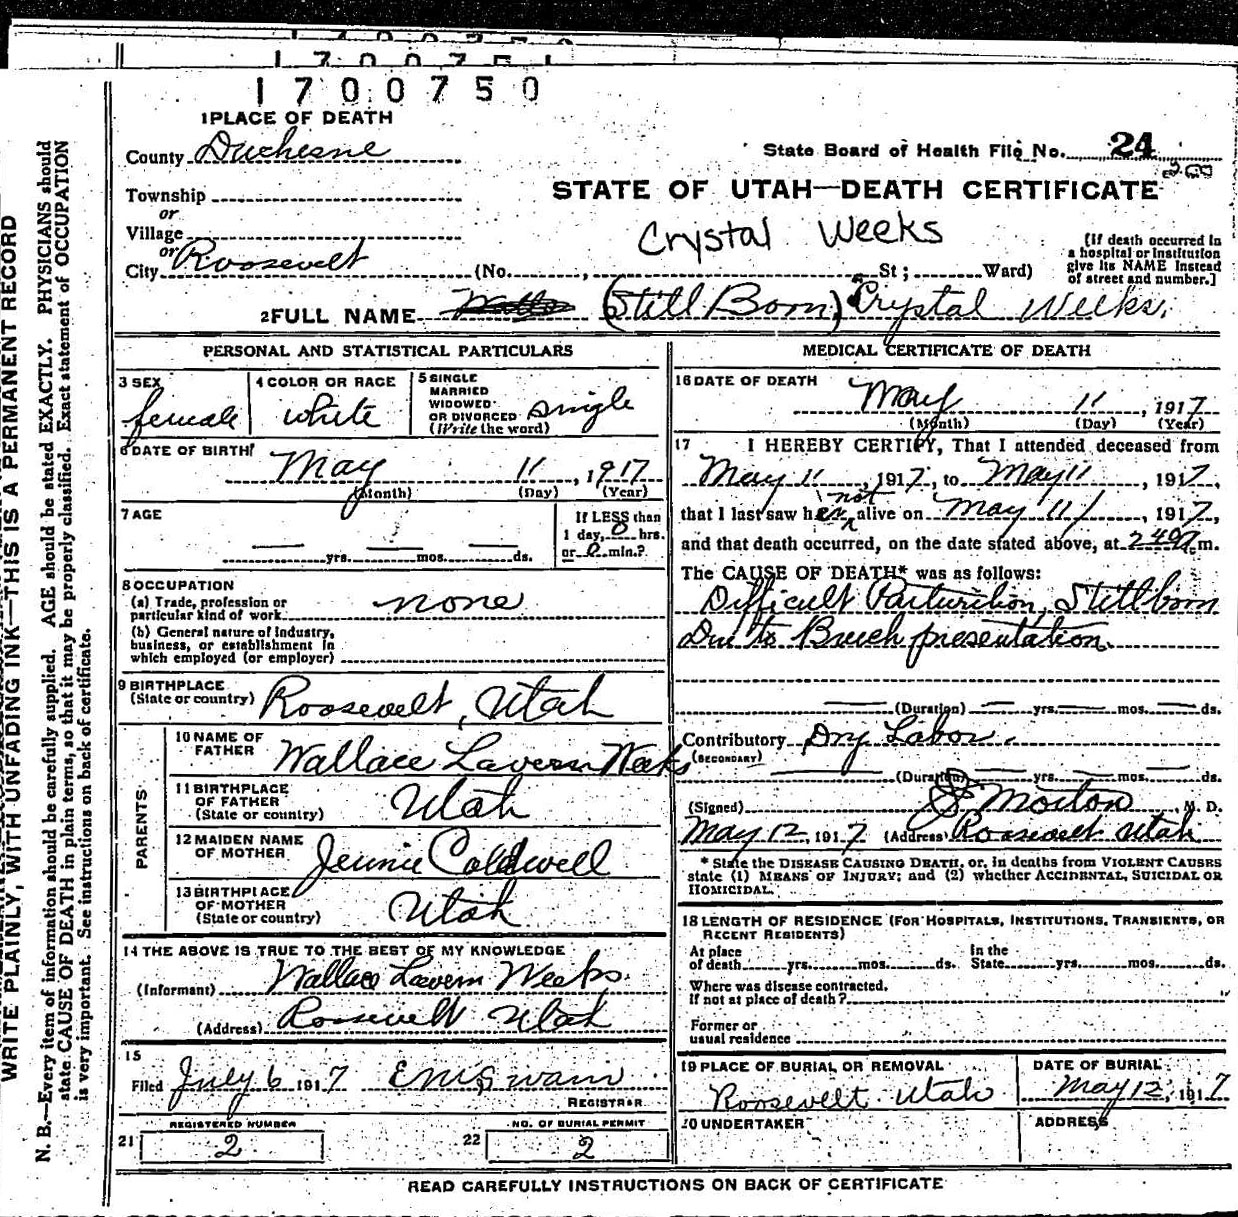 1700751
1700750
1 PLACE OF DEATH
County Duchesne
State Board of Health File No. 24
200
Township
or
Village
or
City Roosevelt (No. , St; Ward)
STATE OF UTAH—DEATH CERTIFICATE
Crystal Weeks
[If death occurred in
a hospital or institution
give its NAME instead
of street and number.]
2 FULL NAME (Still Born) Crystal Weeks.
PERSONAL AND STATISTICAL PARTICULARS
3 SEX
female
4 COLOR OR RACE
white
5 SINGLE
MARRIED
WIDOWED
OR DIVORCED
(Write the word) single
6 DATE OF BIRTH
May 11, 1917
(Month) (Day) (Year)
7 AGE
yrs. mos. ds.
If LESS than
1 day, 0 hrs.
or 0 min.?
8 OCCUPATION
(a) Trade, profession or
particular kind of work none
(b) General nature of industry,
business, or establishment in
which employed (or employer)
9 BIRTHPLACE
(State or country) Roosevelt, Utah
PARENTS
10 NAME OF
FATHER Wallace Lavern Weeks
11 BIRTHPLACE
OF FATHER
(State or country) Utah
12 MAIDEN NAME
OF MOTHER Jennie Caldwell
13 BIRTHPLACE
OF MOTHER
(State or country) Utah.
14 THE ABOVE IS TRUE TO THE BEST OF MY KNOWLEDGE
(Informant) Wallace Lavern Weeks.
(Address) Roosevelt Utah
15
Filed July 6 1917 E M Swain
REGISTRAR
21 REGISTERED NUMBER
2
22 NO. OF BURIAL PERMIT
2
MEDICAL CERTIFICATE OF DEATH
16 DATE OF DEATH
May 11, 1917
(Month) (Day) (Year)
17 I HEREBY CERTIFY, That I attended deceased from
May 11, 1917, to May 11, 1917,
not
that I last saw her alive on May 11, 1917,
and that death occurred, on the date stated above, at 2 40 m.
The CAUSE OF DEATH* was as follows:
Difficult Parturition, Stillborn
Due to Breech presentation.
(Duration) yrs. mos. ds.
Contributory Dry Labor.
(SECONDARY)
(Duration) yrs. mos. ds.
(Signed) Morton M. D.
May 12, 1917 (Address) Roosevelt Utah
* State the DISEASE CAUSING DEATH, or, in deaths from VIOLENT CAUSES
state (1) MEANS OF INJURY; and (2) whether ACCIDENTAL, SUICIDAL OR
HOMICIDAL.
18 LENGTH OF RESIDENCE (FOR HOSPITALS, INSTITUTIONS, TRANSIENTS, OR
RECENT RESIDENTS)
At place In the
of death yrs. mos. ds. State yrs. mos. ds.
Where was disease contracted,
if not at place of death?
Former or
usual residence
19 PLACE OF BURIAL OR REMOVAL
Roosevelt Utah
DATE OF BURIAL
May 12, 1917
20 UNDERTAKER
ADDRESS
READ CAREFULLY INSTRUCTIONS ON BACK OF CERTIFICATE
WRITE PLAINLY, WITH UNFADING INK—THIS IS A PERMANENT RECORD
N. B.—Every item of information should be carefully supplied. AGE should be stated EXACTLY. PHYSICIANS should
state CAUSE OF DEATH in plain terms, so that it may be properly classified. Exact statement of OCCUPATION
is very important. See instructions on back of certificate.